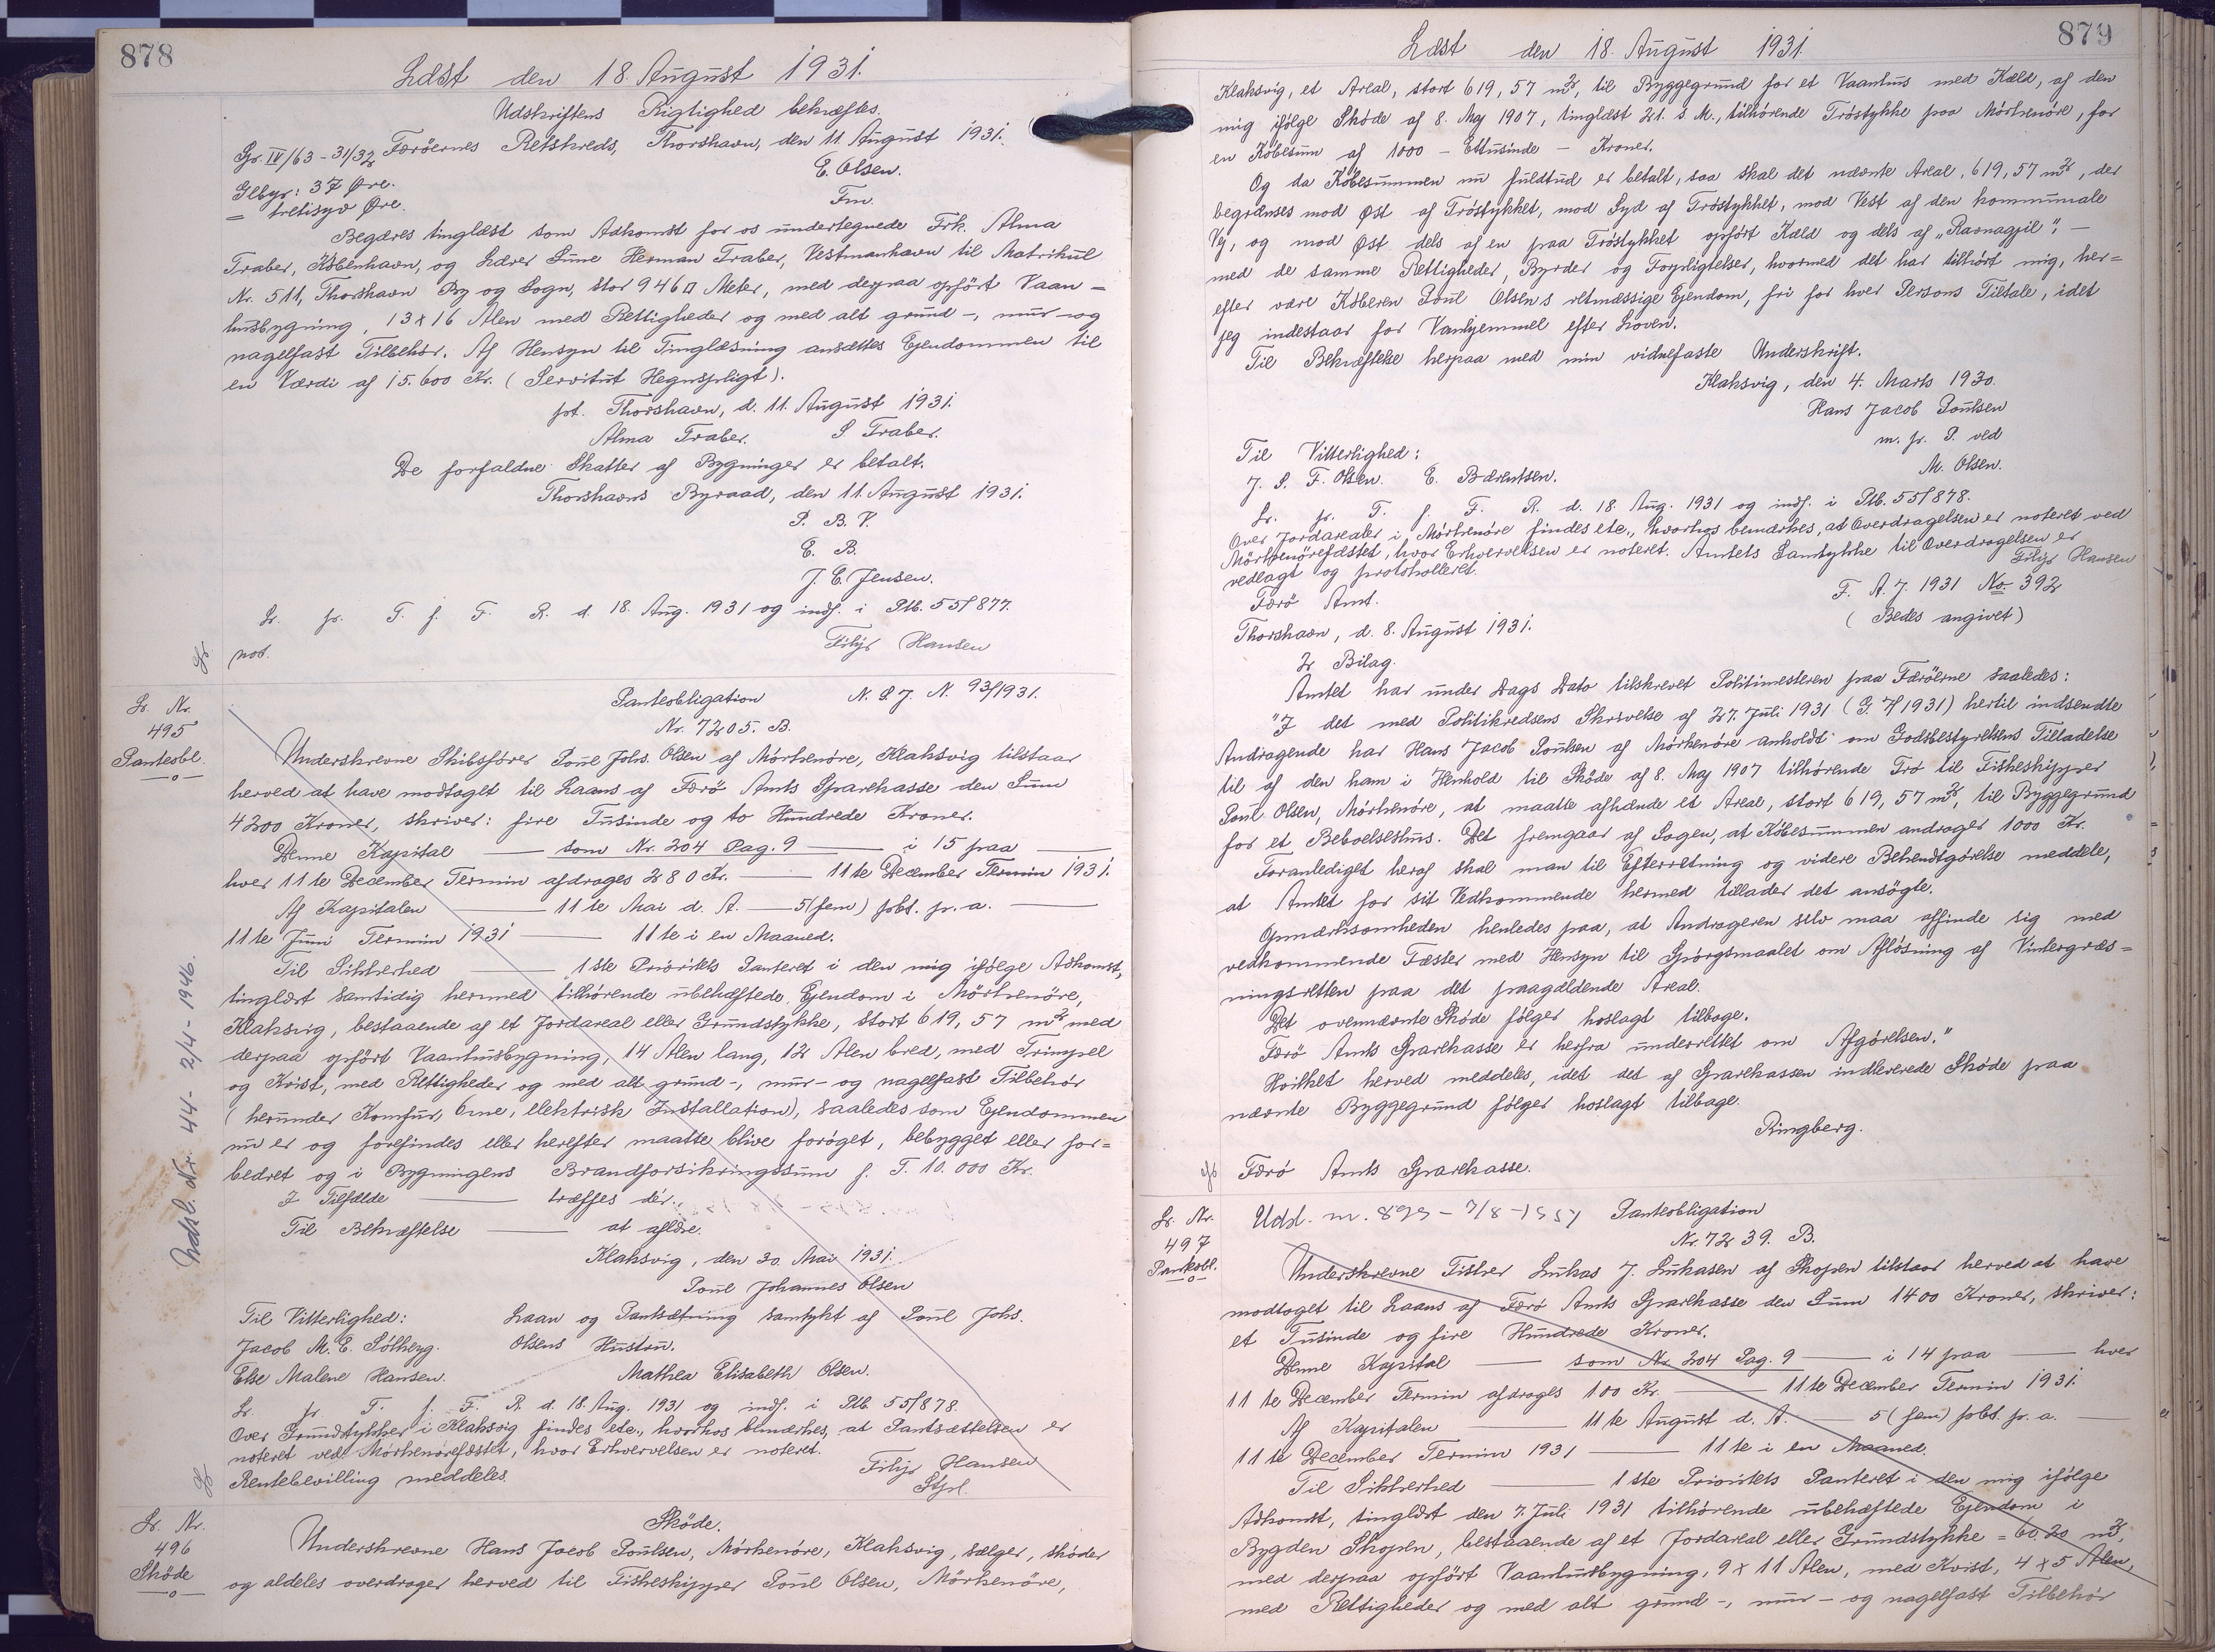 878
Læst den 18. August 1931.
Udskriftens Rigtighed bekræftes.
Gr. IV/63-31/32 Færöernes Retskreds, Thorshavn, den 11. August 1931.
Glbyr: 37 Øre. E. Olsen.
= tretisyv Øre. Fm.
Begæres tinglæst som Adkomst for os undertegnede Frk. Alma
Traber, København, og Lærer Sune Herman Traber, Vestmanhavn til Matrikul
Nr. 511, Thorshavn By og Sogn, stor 946 □ Meter, med derpaa opført Vaan-
husbygning, 13 x 16 Alen med Rettigheder og med alt grund-, mur- og
nagelfast Tilbehör. Af Hensyn til Tinglæsning ansættes Ejendommen til
en Værdi af 15.600 Kr. (Servitut Hegnspligt).
pt. Thorshavn, d. 11. August 1931.
Alma Traber. S Traber.
De forfaldne Skatter af Bygninger er betalt.
Thorshavns Byraad, den 11. August 1931.
P. B. V.
E. B.
J. C. Jensen.
Lr. pr. T. f. F. R. d. 18. Aug. 1931 og indf. i Ptb. 55/877.
not. Filip Hansen
Lr. Nr.
495
Panteobl.
—o—
Panteobligation N. S. J. N. 93/1931.
Nr. 7205. B.
Underskrevne Skibsfører Poul Johs. Olsen af Mörkenöre, Klaksvig tilstaar
herved at have modtaget til Laans af Færö Amts Sparekasse den Sum
4200 Kroner, skriver: fire Tusinde og to Hundrede Kroner.
Denne Kapital —— som Nr. 204 Pag. 9 —— i 15 paa ——
hver 11te December Termin afdrages 280 Kr. —— 11te December Termin 1931.
Af Kapitalen —— 11te Mai d. A. —— 5 (fem) pCt. p. a. ——
11te Juni Termin 1931 —— 11te i en Maaned.
Til Sikkerhed —— 1ste Prioritets Panteret i den mig ifölge Adkomst,
tinglæst samtidig hermed tilhörende ubehæftede Ejendom i Mörkenöre,
Klaksvig, bestaaende af et Jordareal eller Grundstykke, stort 619,57 m² med
derpaa opfört Vaanhusbygning, 14 Alen lang, 12 Alen bred, med Trimpel
og Kvist, med Rettigheder og med alt grund-, mur- og nagelfast Tilbehör
(herunder Komfur, Ovne, elektrisk Installation), saaledes som Ejendommen
nu er og forefindes eller herefter maatte blive foröget, bebygget eller for=
bedret og i Bygningens Brandforsikringssum f. T. 10.000 Kr.
I Tilfælde —— træffes dér.
Til Bekræftelse —— at aflæse.
Klaksvig, den 30. Mai 1931.
Poul Johannes Olsen
Til Vitterlighed: Laan og Pantsætning samtykt af Poul Johs.
Jacob M. E. Sólberg. Olsens Hustru.
Else Malene Hansen. Mathea Elisabeth Olsen.
Lr. pr T. f. F. R. d. 18. Aug. 1931 og indf. i Ptb 55/878.
Over Grundstykker i Klaksvig findes etc., hvorhos bemærkes, at Pantsættelsen er
noteret ved Mörkenörefæstet, hvor Erhvervelsen er noteret.
Rentebevilling meddeles. Filip Hansen
Stpl.
Udsl. Nr. 44 - 2/4 - 1946.
Lr. Nr.
496
Skøde
—o—
Sköde.
Underskrevne Hans Jacob Poulsen, Mörkenöre, Klaksvig, sælger, sköder
og aldeles overdrager herved til Fiskeskipper Poul Olsen, Mörkenöre,
879
Læst den 18. August 1931.
Klaksvig, et Areal, stort 619,57 m², til Byggegrund for et Vaanhus med Kæld, af den
mig ifölge Sköde af 8. Maj 1907, tinglæst 21. s. M., tilhörende Tröstykke paa Mörkenöre, for
en Köbesum af 1000 - Ettusinde - Kroner.
Og da Köbesummen nu fuldtud er betalt, saa skal det nævnte Areal, 619,57 m², der
begrænses mod Øst af Tröstykket, mod Syd af Tröstykket, mod Vest af den kommunale
Vej, og mod Øst dels af en paa Tröstykket opfört Kæld og dels af „Ravnagjil", -
med de samme Rettigheder, Byrder og Forpligtelser, hvormed det har tilhört mig, her=
efter være Köberen Poul Olsens retmæssige Ejendom, fri for hver Persons Tiltale, idet
jeg indestaar for Vanhjemmel efter Loven.
Til Bekræftelse herpaa med min vidnefaste Underskrift.
Klaksvig, den 4. Marts 1930.
Hans Jacob Poulsen
m. p. P. ved
Til Vitterlighed: M. Olsen.
J. S. F. Olsen. E. Bærentsen.
Lr. pr. T. f. F. R. d. 18. Aug. 1931 og indf. i Ptb. 55/878.
Over Jordarealer i Mörkenöre findes etc., hvorhos bemærkes, at Overdragelsen er noteret ved
Mörkenörefæstet, hvor Erhvervelsen er noteret. Amtets Samtykke til Overdragelsen er
vedlagt og protokolleret. Filip Hansen
Færö Amt. F. A. J. 1931 No. 392
Thorshavn, d. 8. August 1931. (Bedes angivet)
2 Bilag.
Amtet har under Dags Dato tilskrevet Politimesteren paa Færöerne saaledes:
"I det med Politikredsens Skrivelse af 27. Juli 1931 (G. 7/1931) hertil indsendte
Andragende har Hans Jacob Poulsen af Mörkenöre anholdt om Godsbestyrelsens Tilladelse
til af den ham i Henhold til Sköde af 8. Maj 1907 tilhörende Trö til Fiskeskipper
Poul Olsen, Mörkenöre, at maatte afhænde et Areal, stort 619,57 m², til Byggegrund
for et Beboelseshus. Det fremgaar af Sagen, at Köbesummen andrager 1000 Kr.
Foranlediget heraf skal man til Efterretning og videre Bekendtgörelse meddele,
at Amtet for sit Vedkommende hermed tillader det ansögte.
Opmærksomheden henledes paa, at Andrageren selv maa affinde sig med
vedkommende Fæster med Hensyn til Spörgsmaalet om Aflösning af Vintergræs=
ningsretten paa det paagældende Areal.
Det ovennævnte Sköde fölger hoslagt tilbage.
Færö Amts Sparekasse er herfra underrettet om Afgörelsen."
Hvilket herved meddeles, idet det af Sparekassen indleverede Sköde paa
nævnte Byggegrund fölger hoslagt tilbage.
Ringberg.
Færö Amts Sparekasse.
Lr. Nr.
497
Panteobl.
—o—
Udsl. nr. 899 - 7/8 - 1957 Panteobligation
Nr. 7239. B.
Underskrevne Fisker Lukas J. Lukasen af Skopen tilstaar herved at have
modtaget til Laans af Færö Amts Sparekasse den Sum 1400 Kroner, skriver:
et Tusinde og fire Hundrede Kroner.
Denne Kapital —— som Nr 204 Pag. 9 —— i 14 paa —— hver
11te December Termin afdrages 100 Kr. —— 11te December Termin 1931.
Af Kapitalen —— 11te August d. A. —— 5 (fem) pCt. p. a. ——
11te December Termin 1931 —— 11te i en Maaned.
Til Sikkerhed —— 1ste Prioritets Panteret i den mig ifölge
Adkomst, tinglæst den 7. Juli 1931 tilhörende ubehæftede Ejendom i
Bygden Skopen, bestaaende af et Jordareal eller Grundstykke = 60.20 m²,
med derpaa opfört Vaanhusbygning, 9 x 11 Alen, med Kvist, 4 x 5 Alen,
med Rettigheder og med alt grund-, mur- og nagelfast Tilbehör